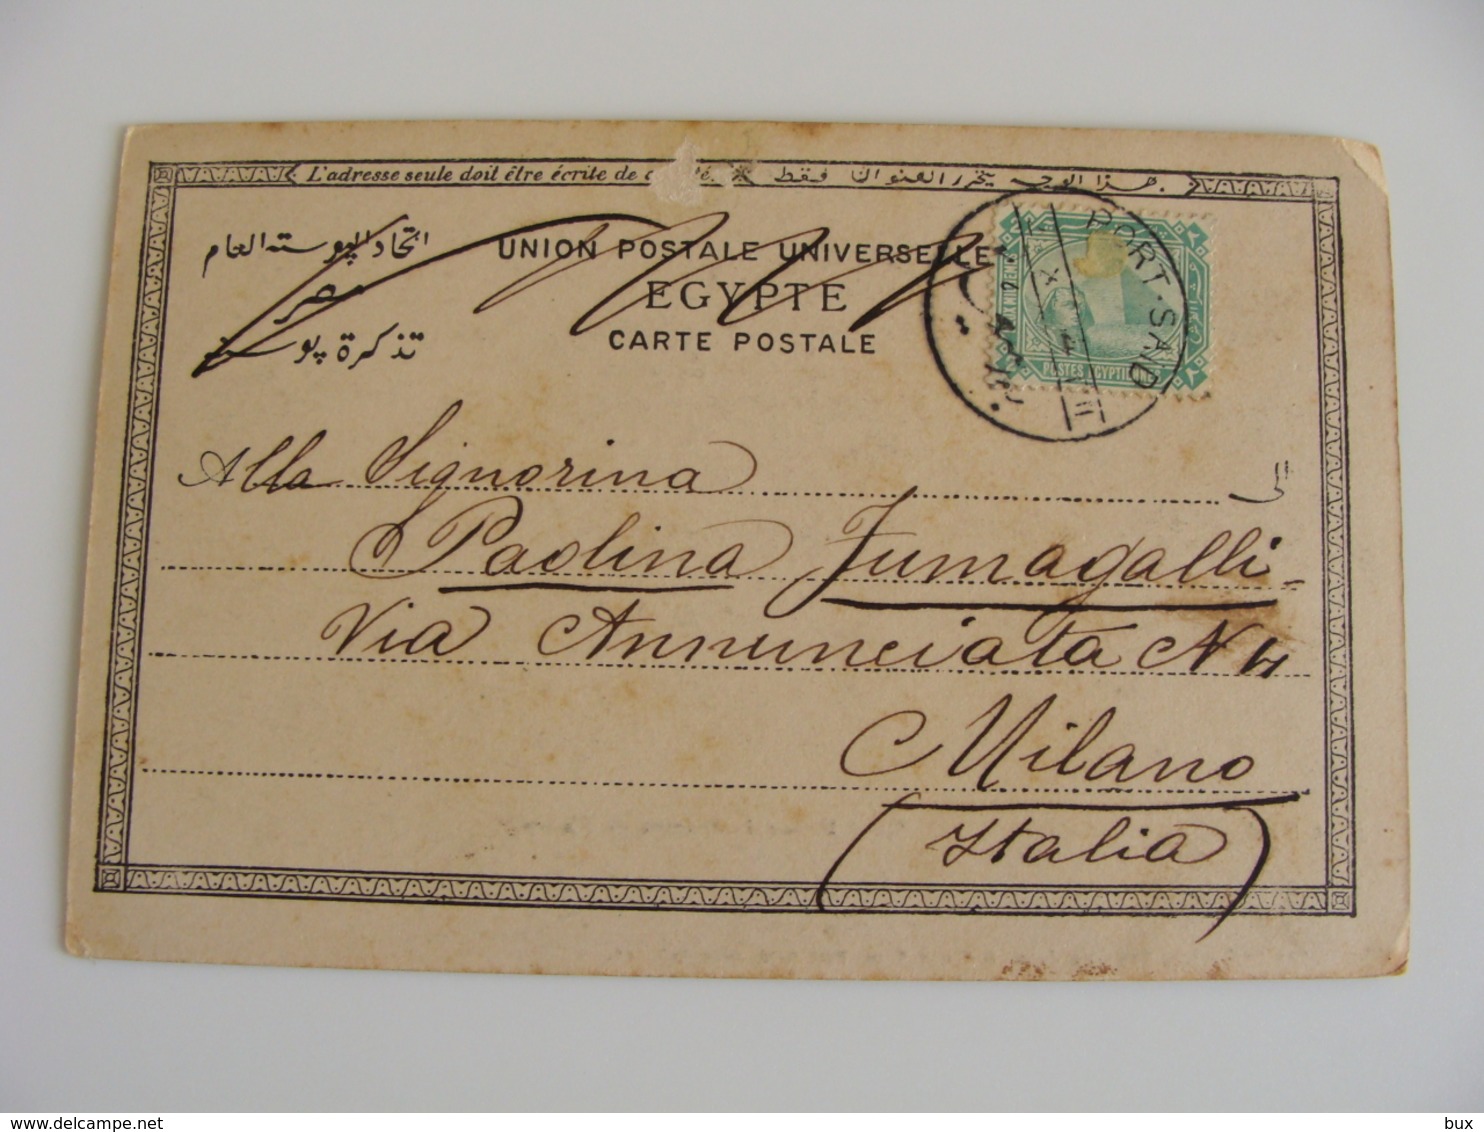 L'adresse seule doit être écrite de côté. هذا الوجه يتحرر العنوان فقط.
اتحاد البوسته العام UNION POSTALE UNIVERSELLE
مصر EGYPTE
تذكرة بوسته CARTE POSTALE
PORT-SAID
POSTES EGYPTIENNES
الى
Alla Signorina
Paolina Fumagalli
Via Annunciata N 4
Milano
(Italia)
bux